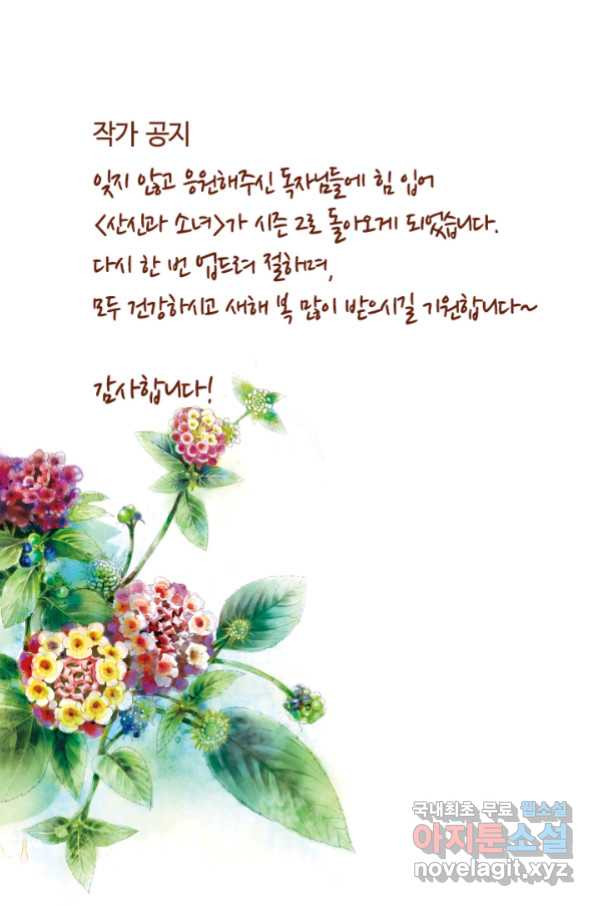 작가 공지
잊지 않고 응원해주신 독자님들에 힘 입어
<산신과 소녀>가 시즌 2로 돌아오게 되었습니다.
다시 한 번 업드려 절하며,
모두 건강하시고 새해 복 많이 받으시길 기원합니다~
감사합니다!
국내최초 무료 웹소설
아지툰소설
novelagit.xyz